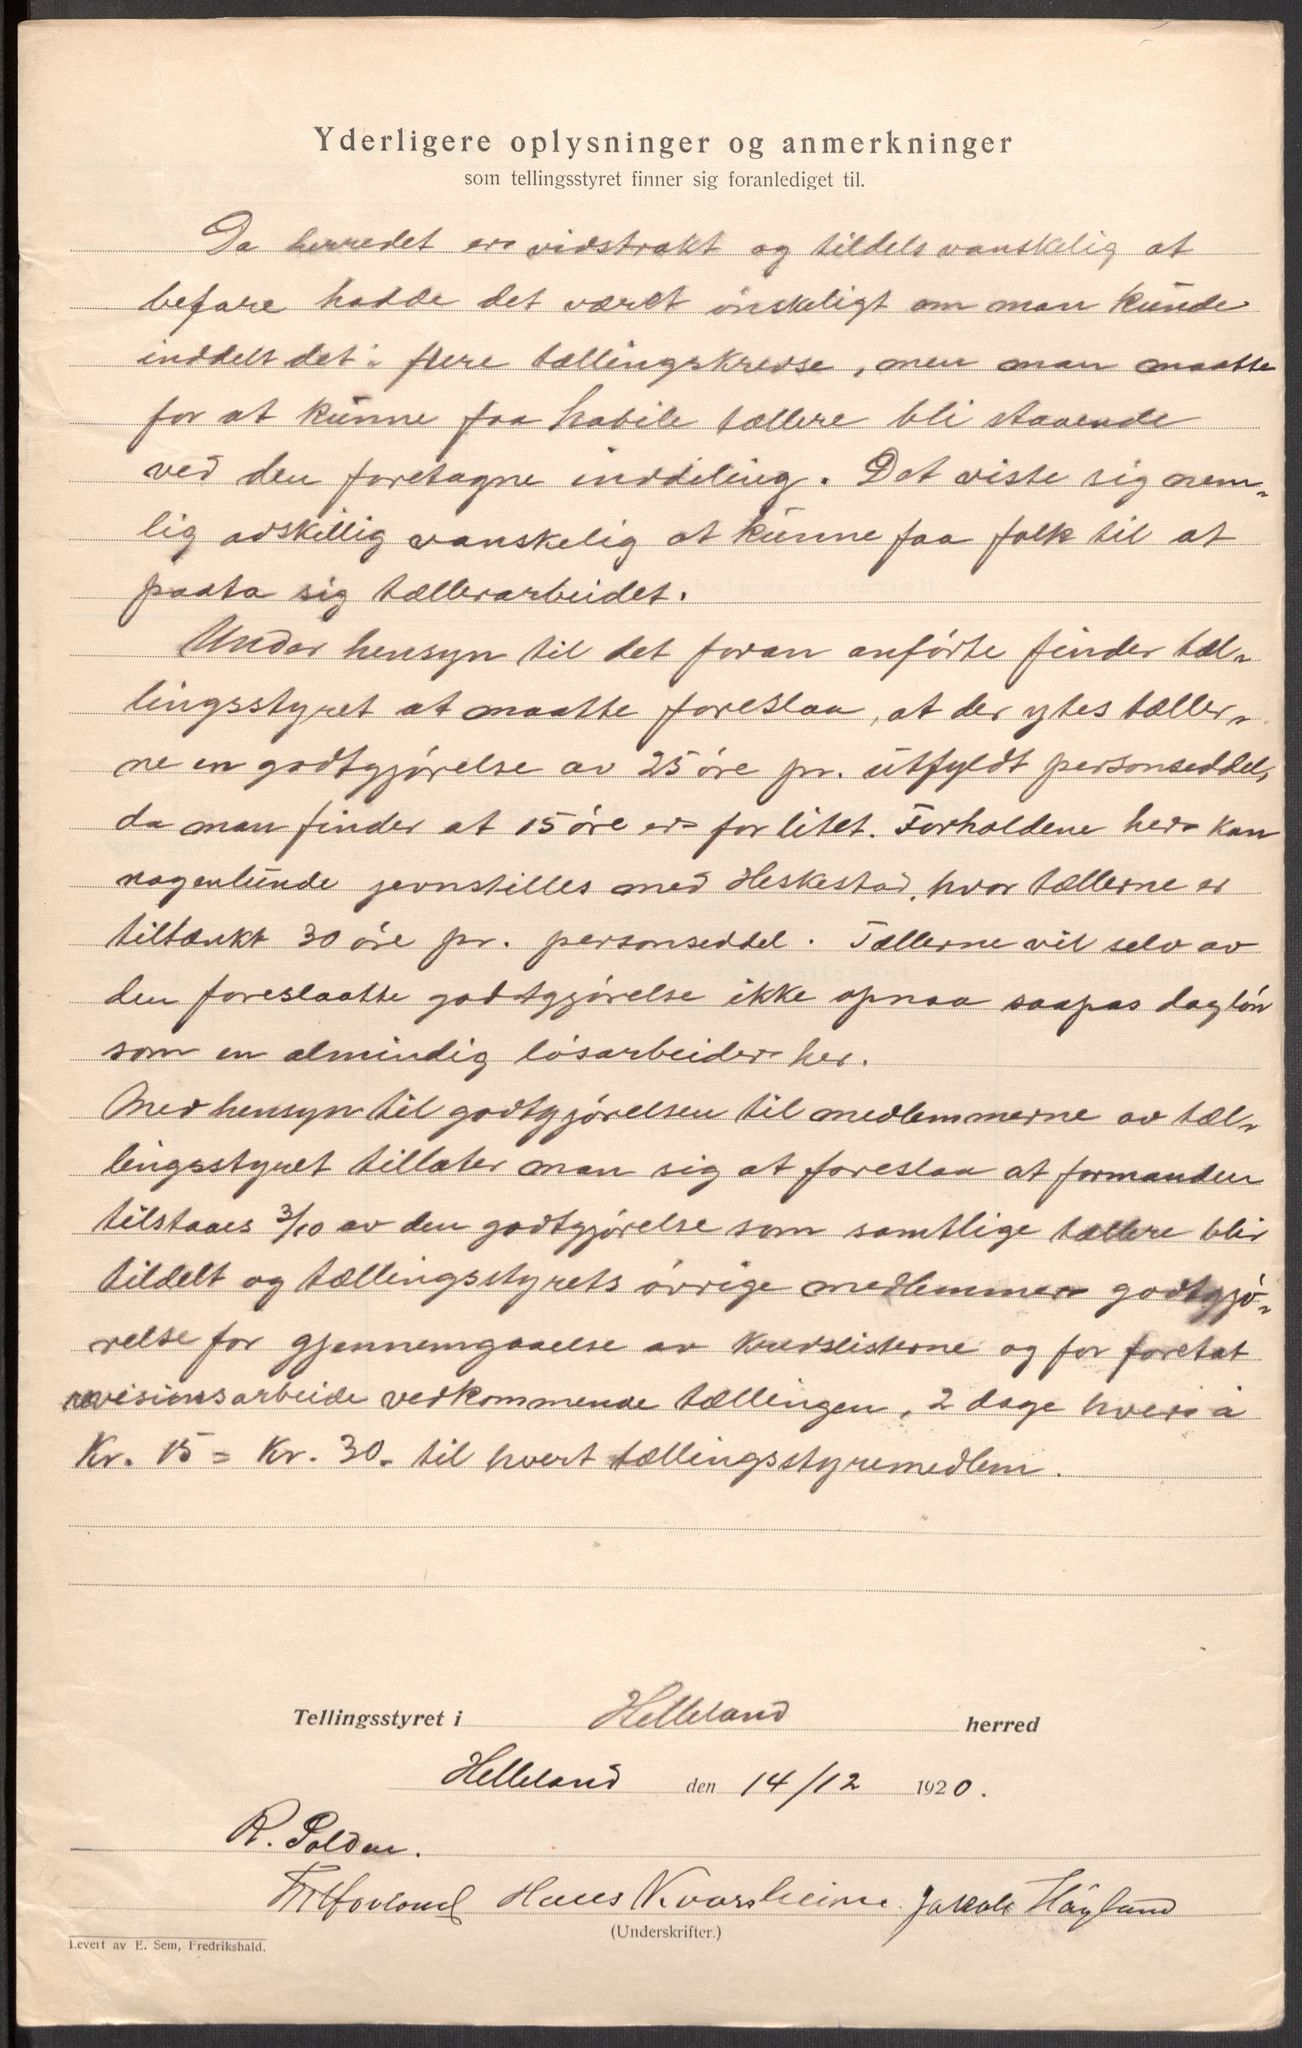 Yderligere oplysninger og anmerkninger
som tellingsstyret finner sig foranlediget til.
Da herredet er vidstrakt og tildels vanskelig at
befare hadde det været ønskeligt om man kunde
inddelt det i flere tællingskredse, men man maatte
for at kunne faa habile tællere bli staaende
ved den foretagne inddeling. Det viste sig nem-
lig adskillig vanskelig at kunne faa folk til at
paata sig tællerarbeidet.
Under hensyn til det foran anførte finder tæl-
lingsstyret at maatte foreslaa, at der ytes tæller-
ne en godtgjørelse av 25 øre pr. utfyldt personseddel,
da man finder at 15 øre er for litet. Forholdene her kan
nogenlunde jevnstilles med Heskestad, hvor tællerne er
tiltænkt 30 øre pr. personseddel. Tællerne vil selv av
den foreslaatte godtgjørelse ikke opnaa saapas dagløn
som en almindig løsarbeider her.
Med hensyn til godtgjørelsen til medlemmerne av tæl-
lingsstyret tillater man sig at foreslaa at formanden
tilstaaes 3/10 av den godtgjørelse som samtlige tællere blir
tildelt og tællingsstyrets øvrige medlemmer godtgjø-
relse for gjennemgaaelse av kredslisterne og for foretat
revisionsarbeide vedkommende tællingen, 2 dage hver à
Kr. 15 = Kr. 30.- til hvert tællingsstyremedlem.
Tellingsstyret i Helleland herred
Helleland den 14/12 1920.
R. Polden.
Hovland Hans Kvassheim. Jakob Høylund
(Underskrifter.)
Levert av E. Sem, Fredrikshald.